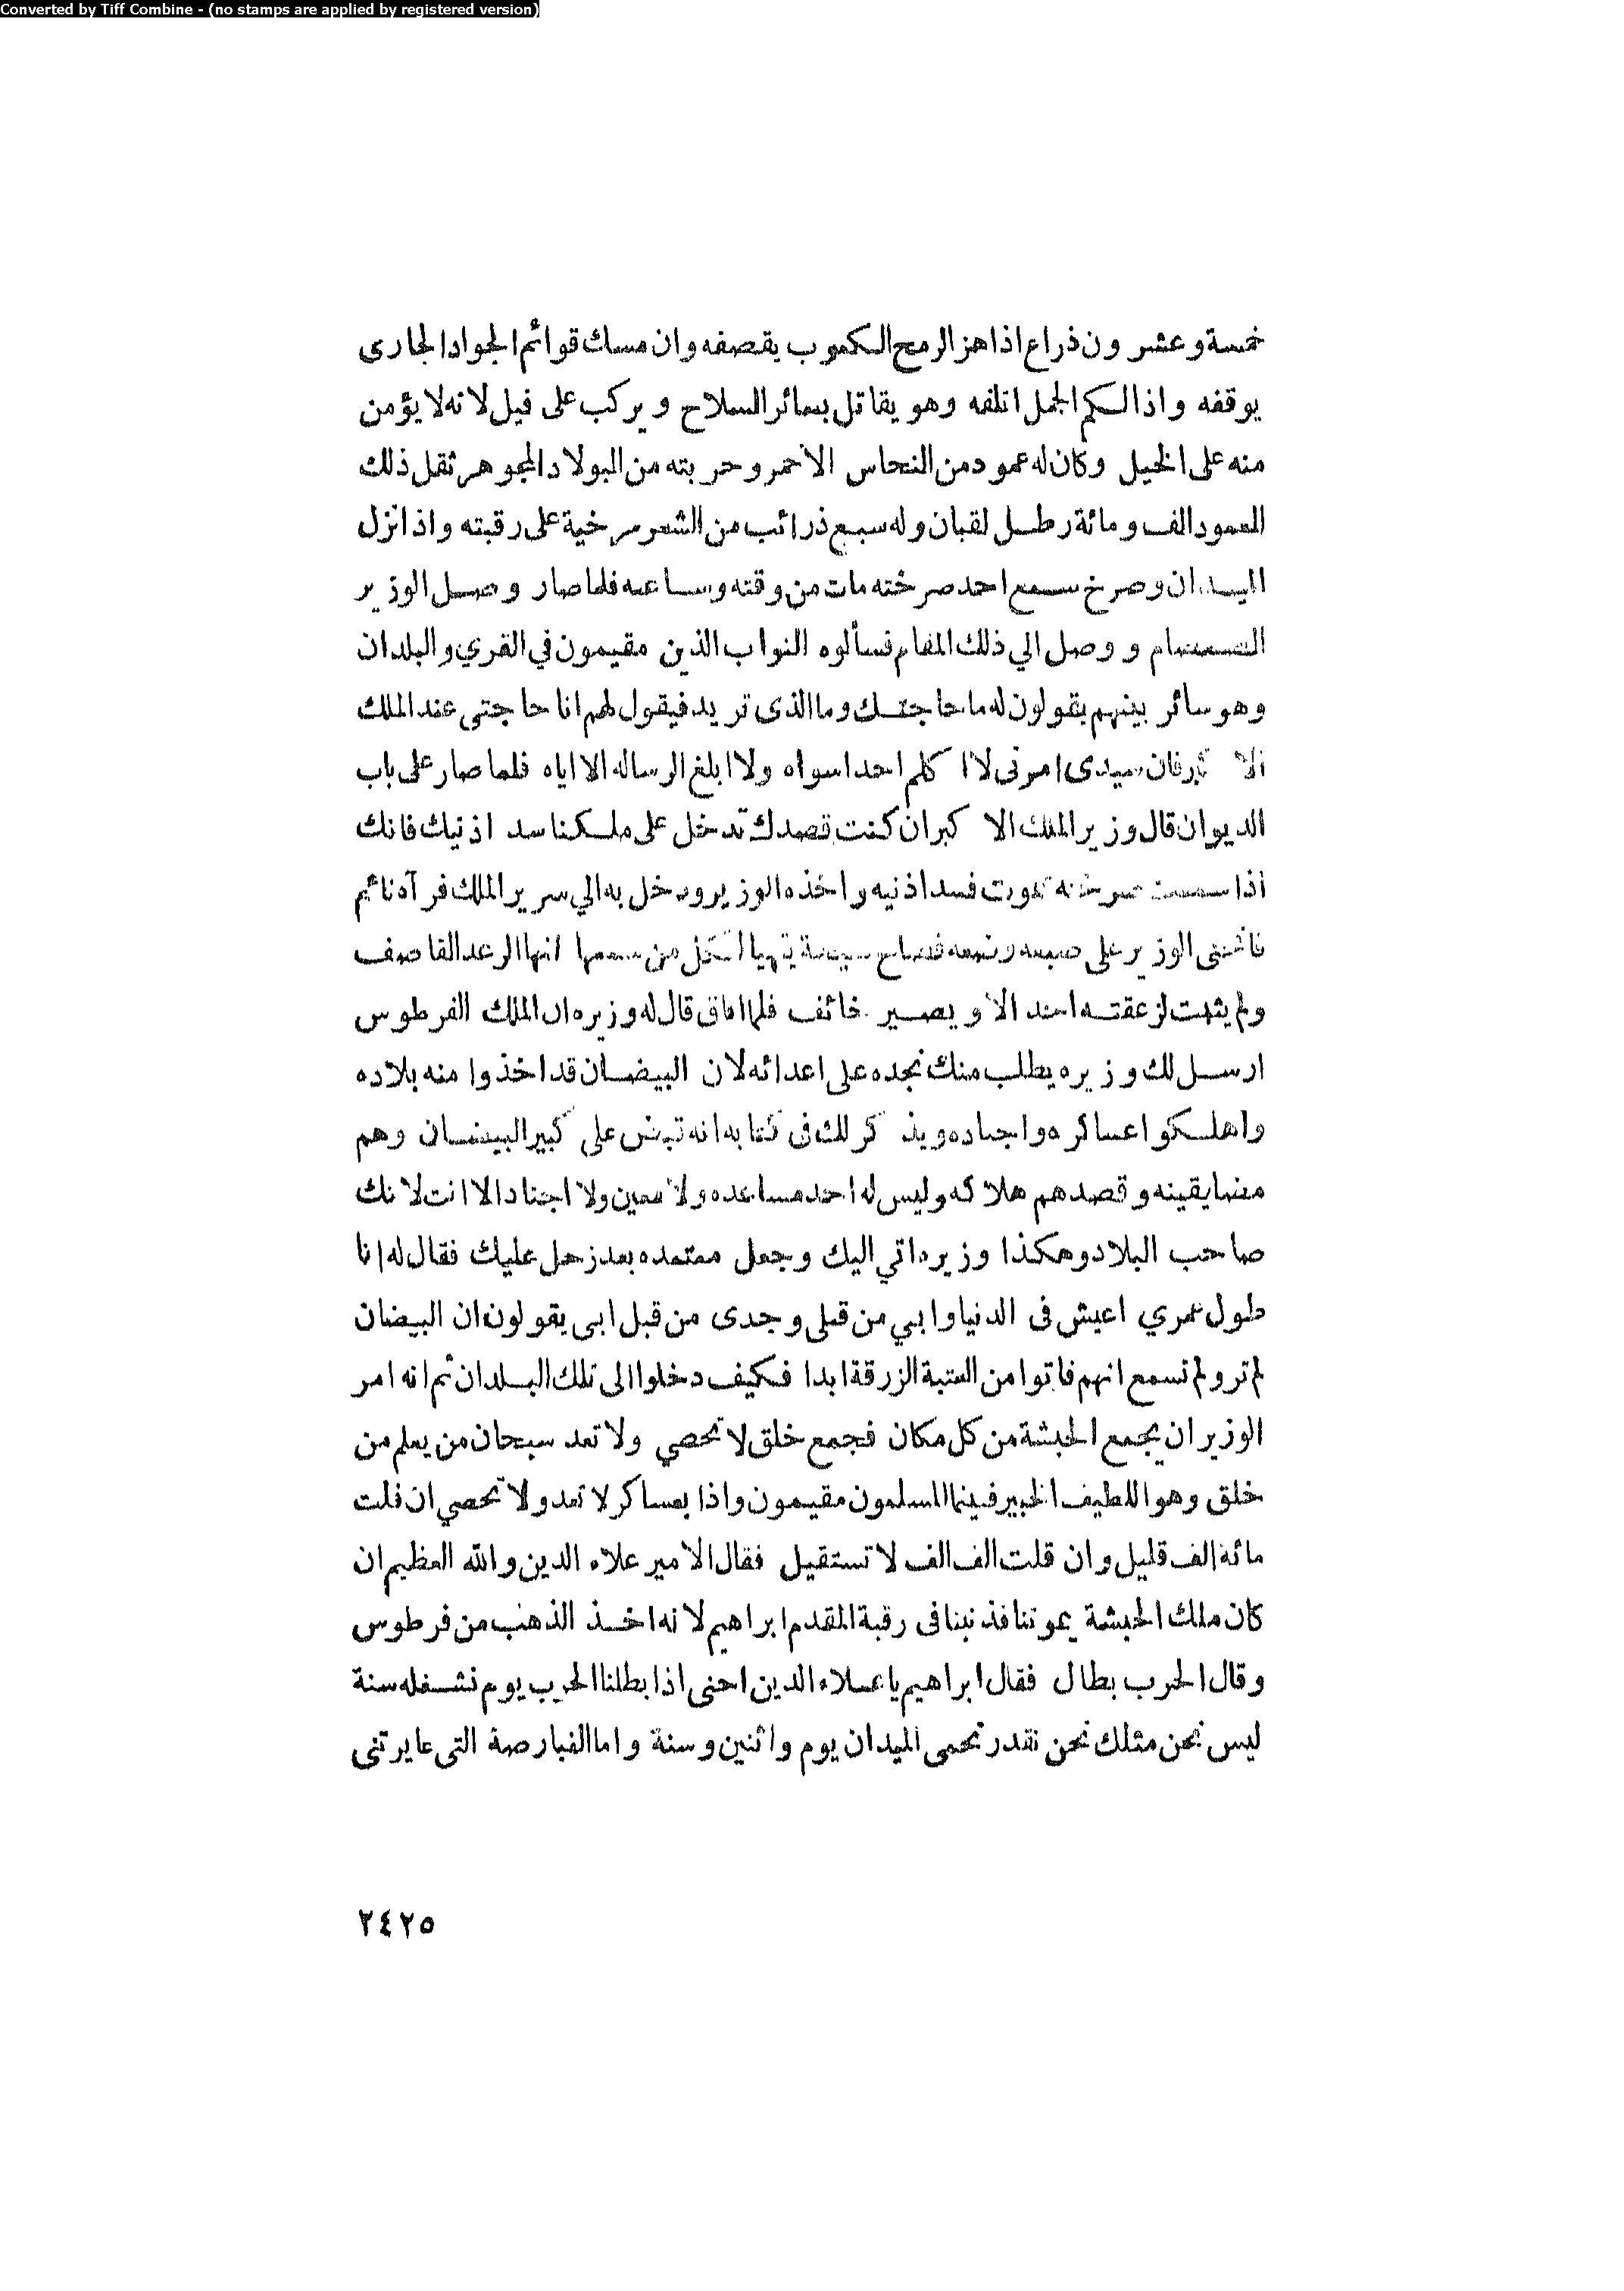 Converted by Tiff Combine - (no stamps are applied by registered version)
خمسة وعشرون ذراع اذا هز الرمح الكعوب يقصفه وان مسك قوائم الجواد الجارى
يوقفه واذا لكم الجمل اتلفه وهو يقاتل بسائر السلاح ويركب على فيل لانه لا يؤمن
منه على الخيل وكان له عمود من النحاس الاحمر وحربته من البولاد المجوهر ثقل ذلك
العمود الف ومائة رطل لقبان وله سبع ذرائب من الشعر مرخية على رقبته واذا نزل
الميدان وصرخ سمع احد صرخته مات من وقته وساعته فلما صار وصل الوزير
الصمصام ووصل الي ذلك المقام فسألوه النواب الذين مقيمون في القري والبلدان
وهو سائر بينهم يقولون له ما حاجتك وما الذى تريد فيقول لهم انا حاجتي عند الملك
سيدى امرنى لا اكلم احدا سواه ولا ابلغ الرساله الا اياه فلما صار على باب
الديوان قال وزير الملك الاكبر ان كنت قصدك تدخل على ملكنا سد اذنيك فانك
اذا سمعت صرخته تموت فسد اذنيه واخذه الوزير ودخل به الي سرير الملك فرآه نائم
الوزير على من سمعها انها الرعد القاصف
ولم يثبت لزعقته احد الا ويصير خائف فلما افاق قال له وزيره ان الملك الفرطوس
ارسل لك وزيره يطلب منك نجده على اعدائه لان البيضان قد اخذوا منه بلاده
واهلكوا عساكره واجناده ويذكر لك فى كتابه انه قبض على كبير البيضان وهم
مضايقينه وقصدهم هلاكه وليس له احد مساعده ولا معين ولا اجناد الا انت لانك
صاحب البلاد وهكذا وزيره اتي اليك وجعل معتمده بعد زحل عليك فقال له انا
طول عمري اعيش فى الدنيا وابي من قبلى وجدى من قبل ابى يقولون ان البيضان
لم تر ولم تسمع انهم فاتوا من العتبة الزرقة ابدا فكيف دخلوا الى تلك البلدان ثم انه امر
الوزير ان يجمع الحبشة من كل مكان فجمع خلق لا تحصي ولا تعد سبحان من يعلم من
خلق وهو اللطيف الخبير فبينما المسلمون مقيمون واذا بعساكر لا تعد ولا تحصي ان قلت
مائة الف قليل وان قلت الف الف لا تستقيل فقال الامير علاء الدين والله العظيم ان
كان ملك الحبشة يموتنا فذنبنا فى رقبة المقدم ابراهيم لانه اخذ الذهب من فرطوس
وقال الحرب بطال فقال ابراهيم يا علاء الدين احنى اذا بطلنا الحرب يوم نشغله سنة
ليس نحن مثلك نحن نقدر نحمى الميدان يوم واثنين وسنة واما القبارصة التى عايرتنى
٢٤٢٥